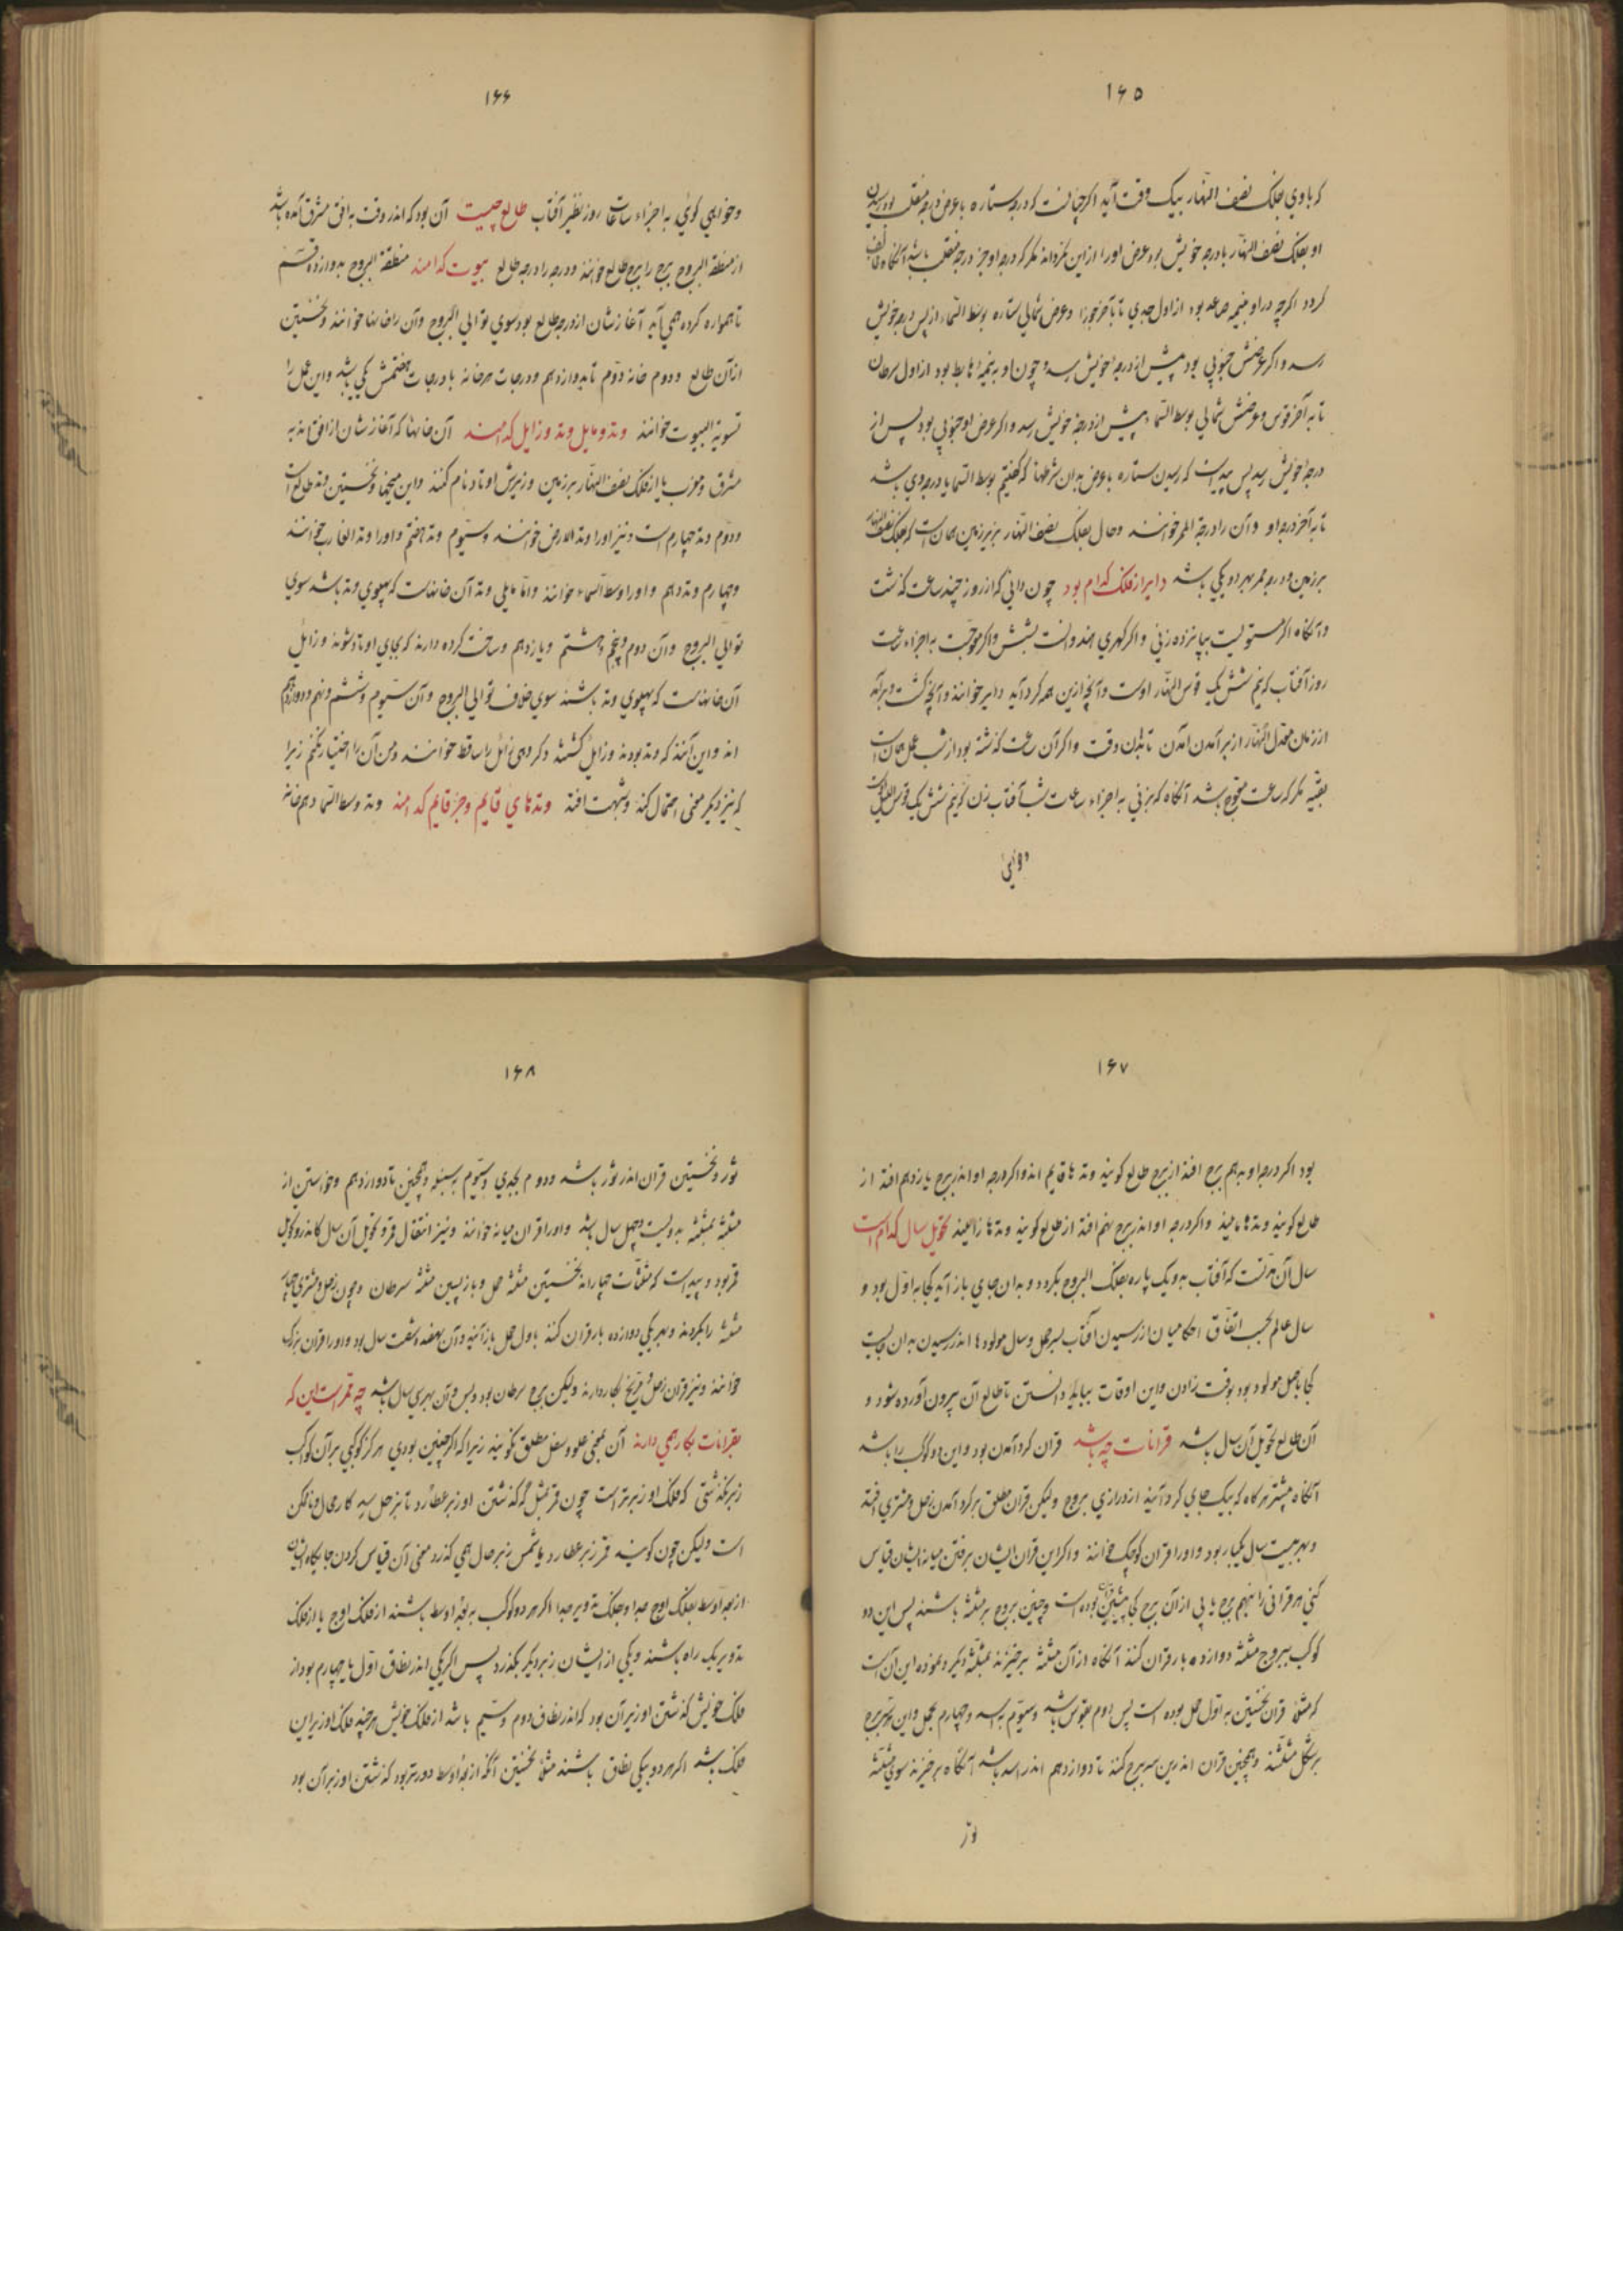 ۱۶۵
که با وی بفلک نصف النهار بیک وقت آید اگر چنانست که درجه ستاره با عرض درجه منقلب بود رسیدن
او بفلک نصف النهار با درجه خویش بود عرض او را ازین نگرداند مگر که درجه او جز درجه منقلب باشد آنگاه مخالف
گردد اگر چه در او بنیمه صاعد بود از اول جدی تا بآخر جوزا و عرض شمالی ستاره بوسط السماء از پس درجه خویش
رسد و اگر عرضش جنوبی بود پیش از درجهٔ خویش رسد و چون او به نیمهٔ هابط بود از اول سرطان
تا به آخر قوس و عرضش شمالی بوسط السماء پیش از درجهٔ خویش رسد و اگر عرض او جنوبی بود پس از
درجهٔ خویش رسد پس پیداست که رسیدن ستاره با عرض بدان شرطها که گفتیم بوسط السما یا درجه وی باشد
تا به آخر درجه او و آن را درجهٔ الممر خوانند و حال بفلک نصف النهار بزیر زمین همانست که بفلک نصف النهار
برزمین و درجه ممر بهر دو یکی باشد دایر از فلک کدام بود چون دانی که از روز چند ساعت گذشت
و آنگاه اگر مستویست بپانزده زنی و اگر گهری هندوانست بشش و اگر معوجّست به اجزاء ساعت
روز آفتاب که نیم شش یک قوس النهار اوست و آنچه ازین همه گرد آید دایر خوانند و آنچه گشت و برآمد
از زمان معدل النهار از بر آمدن آمدن تا بدان وقت و اگر آن ساعت گذشته بود از شب عمل همانست
بعینه مگر که ساعت معوج باشد آنگاه که بزنی به اجزاء ساعات شب آفتاب بزن که نیم شش یک قوس اللیل اوست
و خواهی
۱۶۶
و خواهی گوئی به اجزاء ساعات روز نظیر آفتاب طالع چیست آن بود که اندر وقت به افق مشرق آمده باشد
از منطقة البروج برج را برج طالع خوانند و درجه را درجه طالع بیوت کدامند منطقة البروج بدوازده قسم
ناهمواره کرده همی آید آغازشان از درجه طالع بود سوی توالی البروج و آن را خانها خوانند و نخستین
از آن طالع و دوم خانه دوم تا بدوازدهم و درجات هر خانه با درجات هفتمش یکی باشد و این عمل را
تسویة البیوت خوانند وتد و مایل وتد و زایل کدامند آن خانها که آغازشان از افق اند به
مشرق و مغرب یا از فلک نصف النهار برزمین و زیرش اوتاد نام کنند و این میخها و نخستین وتد طالع است
و دوم وتد چهارم است و نیز او را وتد الارض خوانند و سیّوم وتد هفتم و او را وتد الغارب خوانند
و چهارم وتد دهم و او را وسط السماء خوانند و امّا مایلی وتد آن خانهاست که پهلوی وتد باشد سوی
توالی البروج و آن دوم و پنجم و هشتم و یازدهم و ساخت کرده دارند که بجای اوتاد شوند و زایل
آن خانهاست که پهلوی وتد باشند سوی خلاف توالی البروج و آن سیّوم و ششم و نهم و دوازدهم
اند و این آنند که وتد بودند و زایل گشتند و گروهی زائل را ساقط خوانند و من آن را اختیار نکنم زیرا
که نیز دیگر معنی احتمال کند و شبهت افتد وتدهای قایم و جز قایم کدامند وتد وسط السما دهم خانه
۱۶۷
بود اگر درجه او به دهم برج افتد از برج طالع گویند وتدها قایم اند و اگر درجه او اندر برج یازدهم افتد از
طالع گویند وتدها مایلند و اگر درجه او اندر برج نهم افتد از طالع گویند وتدها زایلند تحویل سال کدام است
سال آن مدتست که آفتاب به و یک پاره بفلک البروج بگردد و بدان جای باز آید کجا به اوّل بود و
سال عالم بحسب اتفاق احکامیان از رسیدن آفتاب بسر حمل و سال مولودها اندر رسیدن بدان جایست
کجا باصل مولود بود بوقت زادن و این اوقات بباید دانستن تا طالع آن بیرون آورده شود و
آن طالع تحویل آن سال باشد قرانات چه باشد قران گرد آمدن بود و این دو کوکب را باشد
آنگاه بیشتر هر گاه که بیک جای گرد آیند از درازی بروج و لیکن قران مطلق بر گرد آمدن زحل و مشتری افتد
و بهر بیست سال یکبار بود و او را قران کوچک خوانند و اگر این قران ایشان برفتن میانه ایشان قیاس
کنی هر قرانی را بنهم برج یابی از آن برج کجا پیشین قران بوده است و چنین بروج بر مثلثه باشند پس این دو
کوکب ببروج مثلثه دوازده بار قران کنند آنگاه از آن مثلثه برخیزند بمثلثه دیگر و نموده این آن است
که مثلا قران نخستین به اول حمل بوده است پس دوم بقوس باشد و سیّوم به اسد و چهارم بحمل و این هر سه برج
بر شکل مثلثند و همچنین قران اندرین سه برج کنند تا دوازدهم اندر اسد باشد آنگاه برخیزند سوی مثلثه
ثور
۱۶۸
ثور و نخستین قران اندر ثور باشد و دوم بجدی و سیّوم بسنبله و همچنین تا دوازدهم و خواستن از
مثلثه بمثلثه به دویست و چهل سال باشد و او را قران میانه خوانند و نیز انتقال قمر و تحویل آن سال کاندرو تحویل
قمر بود و پیداست که مثلثات چهاراند نخستین مثلثه حمل و بازپسین مثلثه سرطان و چون زحل و مشتری چهار
مثلثه را بگردند و بهر یکی دوازده بار قران کنند باول حمل باز آیند و آن بنهصد و شصت سال بود و او را قران بزرگ
خوانند و نیز قران زحل و مریخ بکار دارند ولیکن برج سرطان بود و بس و آن بهر سی سال باشد چه ممر است این که
بقرانات بکار همی دارند آن بمعنی علو و سفل مطلق نگویند زیراک اگر چنین بودی هرگز کوکبی بر آن کوکب
زبر نگذشتی که فلک او زبرتر است چون قمر بمثل که گذشتن او زبر عطارد تا بزحل رسد کار محال و ناممکن
است ولیکن چون گویند قمر زبر عطارد یا شمس زبر زحل همی گذرد معنی آن قیاس کردن جایگاه ایشان
از بعد اوسط بفلک اوج جدا و بفلک تدویر جدا اگر هر دو کوکب به بعد اوسط باشند از فلک اوج یا از فلک
تدویر یک راه باشند و یکی از ایشان زبر دیگر بگذرد پس اگر یکی اندر نطاق اوّل یا چهارم بود از
فلک خویش گذشتن او زبر آن بود که اندر نطاق دوم و سیّم باشد از فلک خویش هر چند فلک او زیر این
فلک باشد اگر هر دو بیکی نطاق باشند مثلا نخستین آنکه از بعد اوسط دورتر بود گذشتن او زبر آن بود